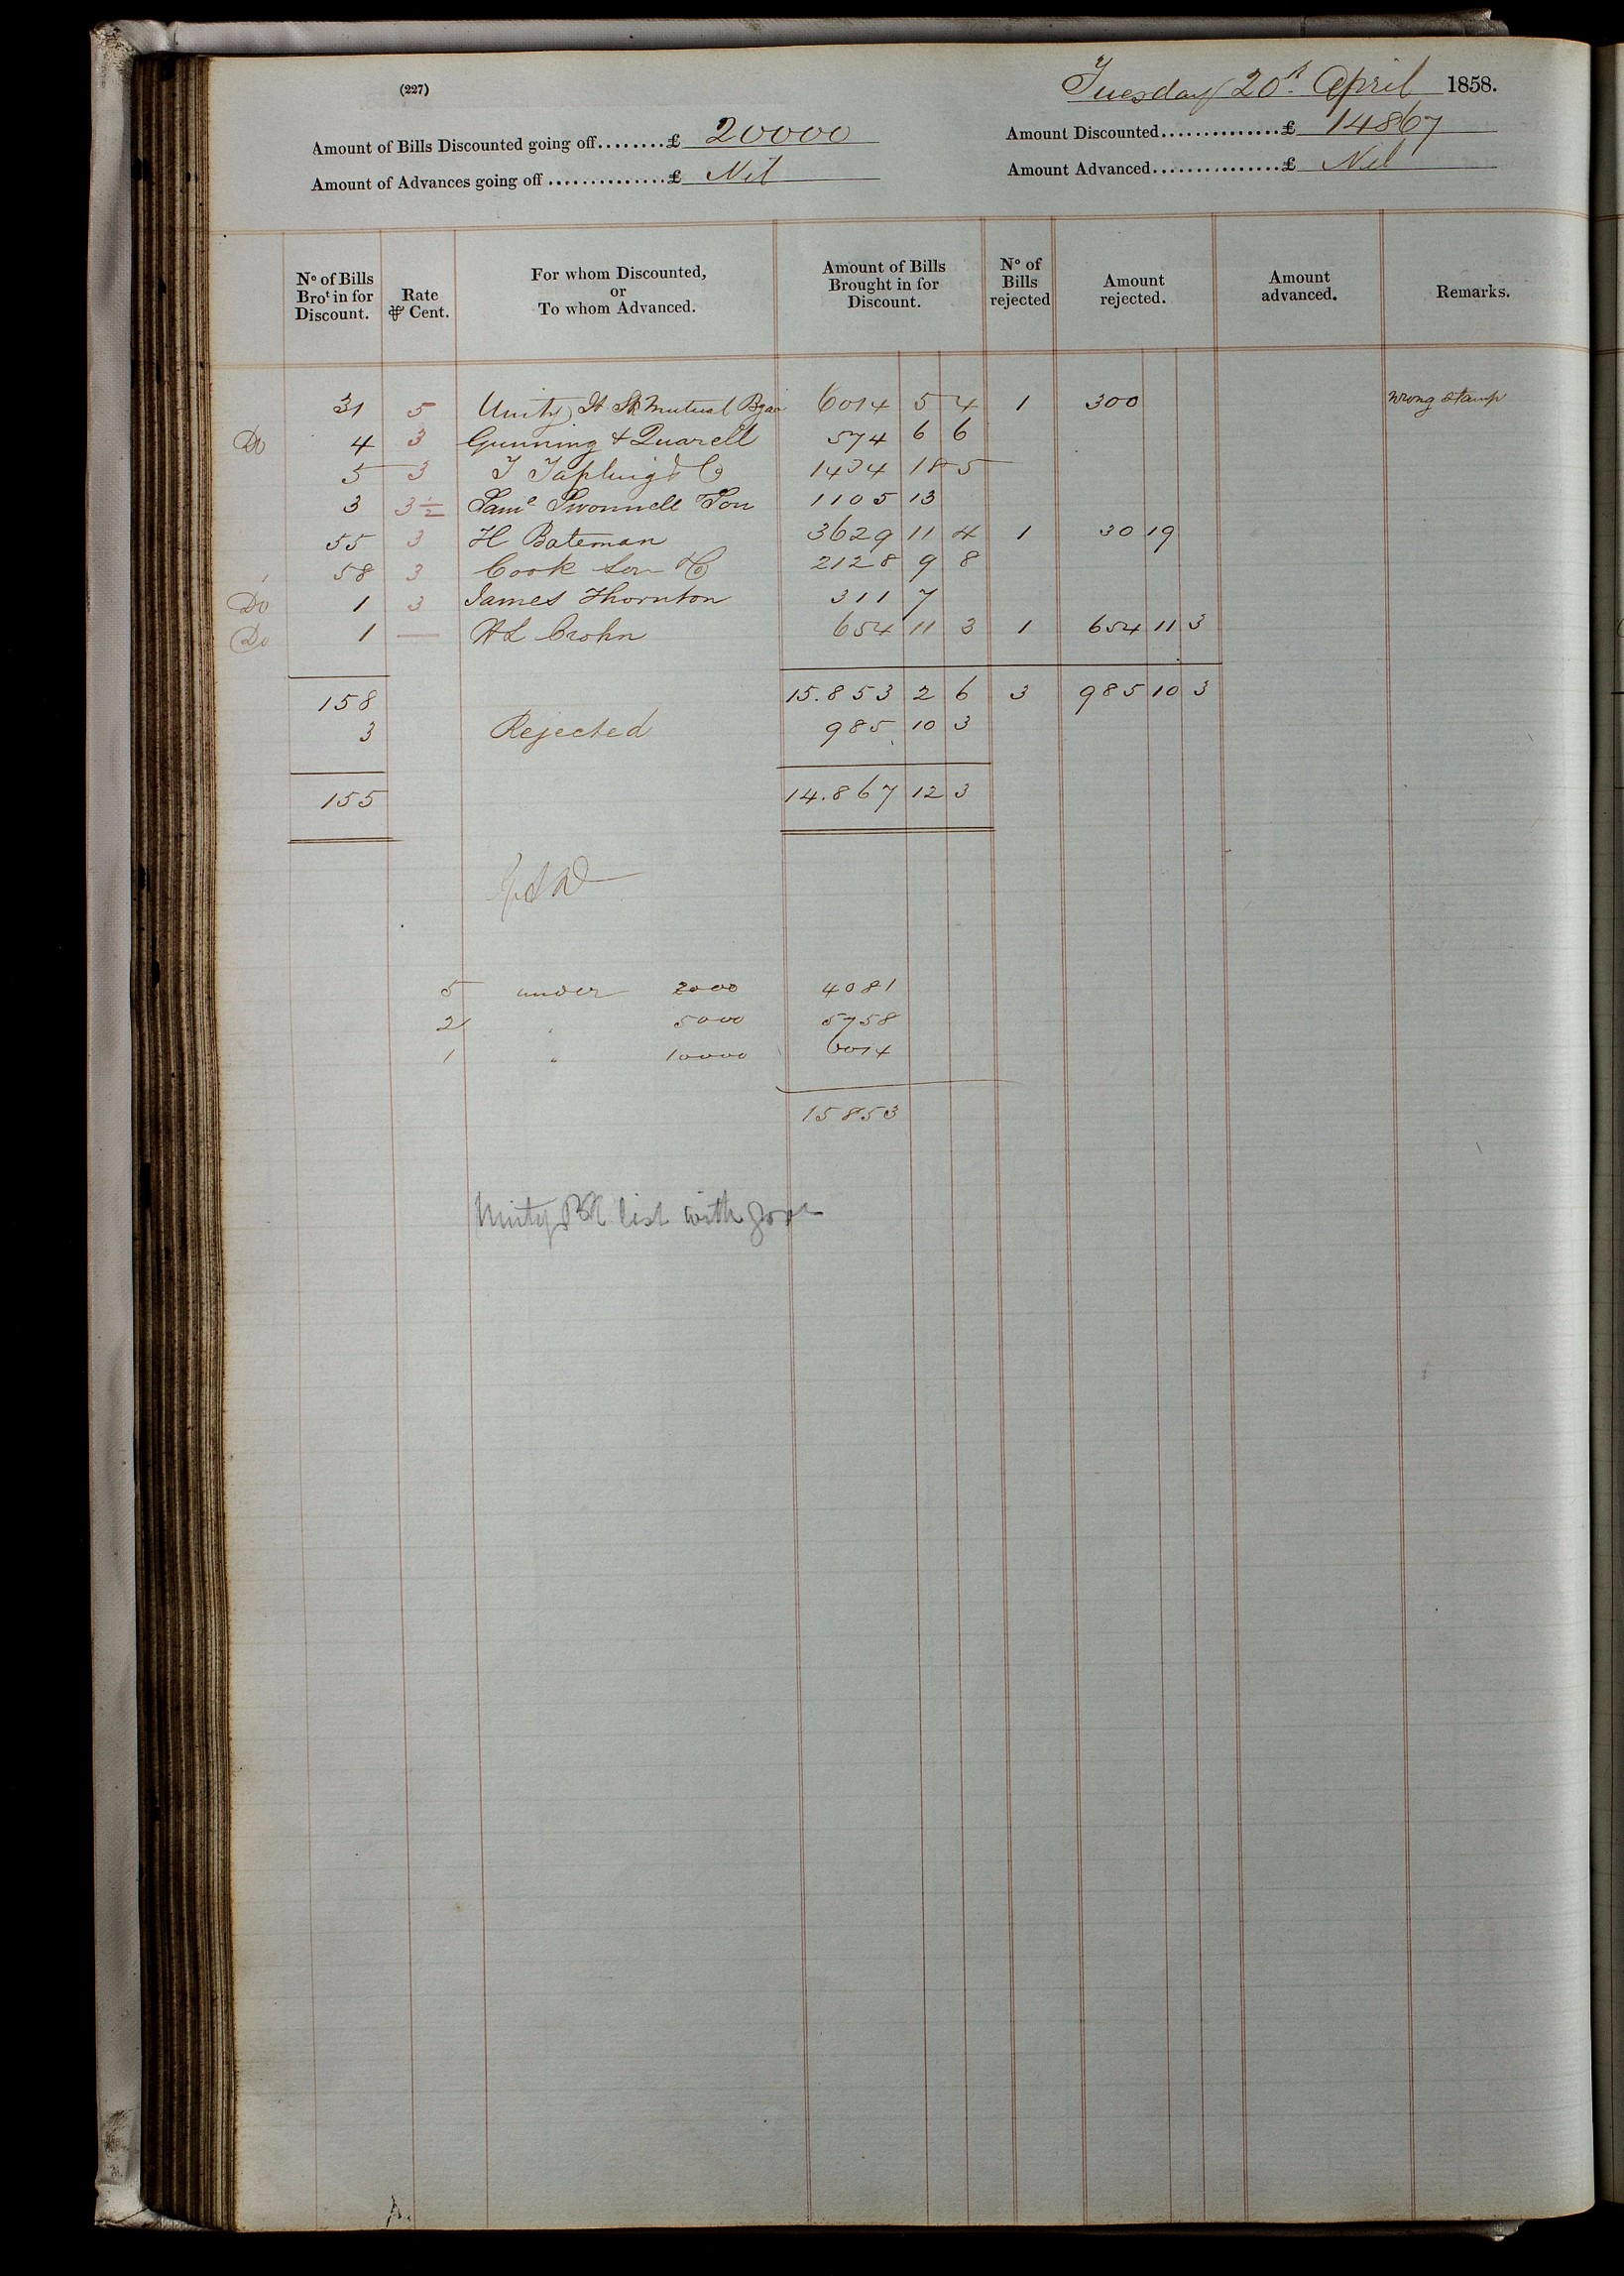 (227) Tuesday 20th April 1858.
Amount of Bills Discounted going off........£ 20000 Amount Discounted..............£ 14867
Amount of Advances going off..............£ Nil Amount Advanced...............£ Nil
No of Bills Brot in for Discount. Rate ⅌ Cent. For whom Discounted, or To whom Advanced. Amount of Bills Brought in for Discount. No of Bills rejected Amount rejected. Amount advanced. Remarks.
31 5 Unity Jt Stk Mutual Bgan 6014 5 4 1 300 wrong stamp
Do 4 3 Gunning & Quarell 574 6 6
5 3 J Tapling & Co 1434 18 5
3 3½ Saml Swonnell Son 1105 13
55 3 H Bateman 3629 11 4 1 30 19
58 3 Cook Son & Co 2128 9 8
Do 1 3 James Thornton 311 7
Do 1 — HL Crohn 654 11 3 1 654 11 3
158 15.853 2 6 3 985 10 3
3 Rejected 985 10 3
155 14.867 12 3
5 under 2000 4081
2 " 5000 5758
1 " 10000 6014
15853
Unity Bk list with